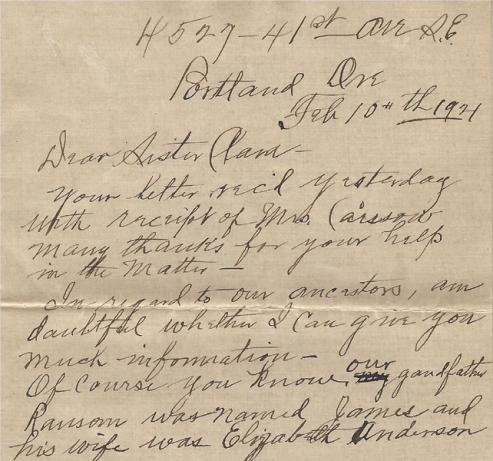 4527-41st Ave S.E.
Portland Ore
Feb 10th 1921
Dear Sister Clara-
Your letter rec'd yesterday
with receipt of Mrs.
many thanks for your help
in the Matter-
In regard to our ancestors, am
doubtful whether I can give you
much information-
Of Course you know, our gandfather
Ransom was named James and
his wife was Elizabeth Anderson